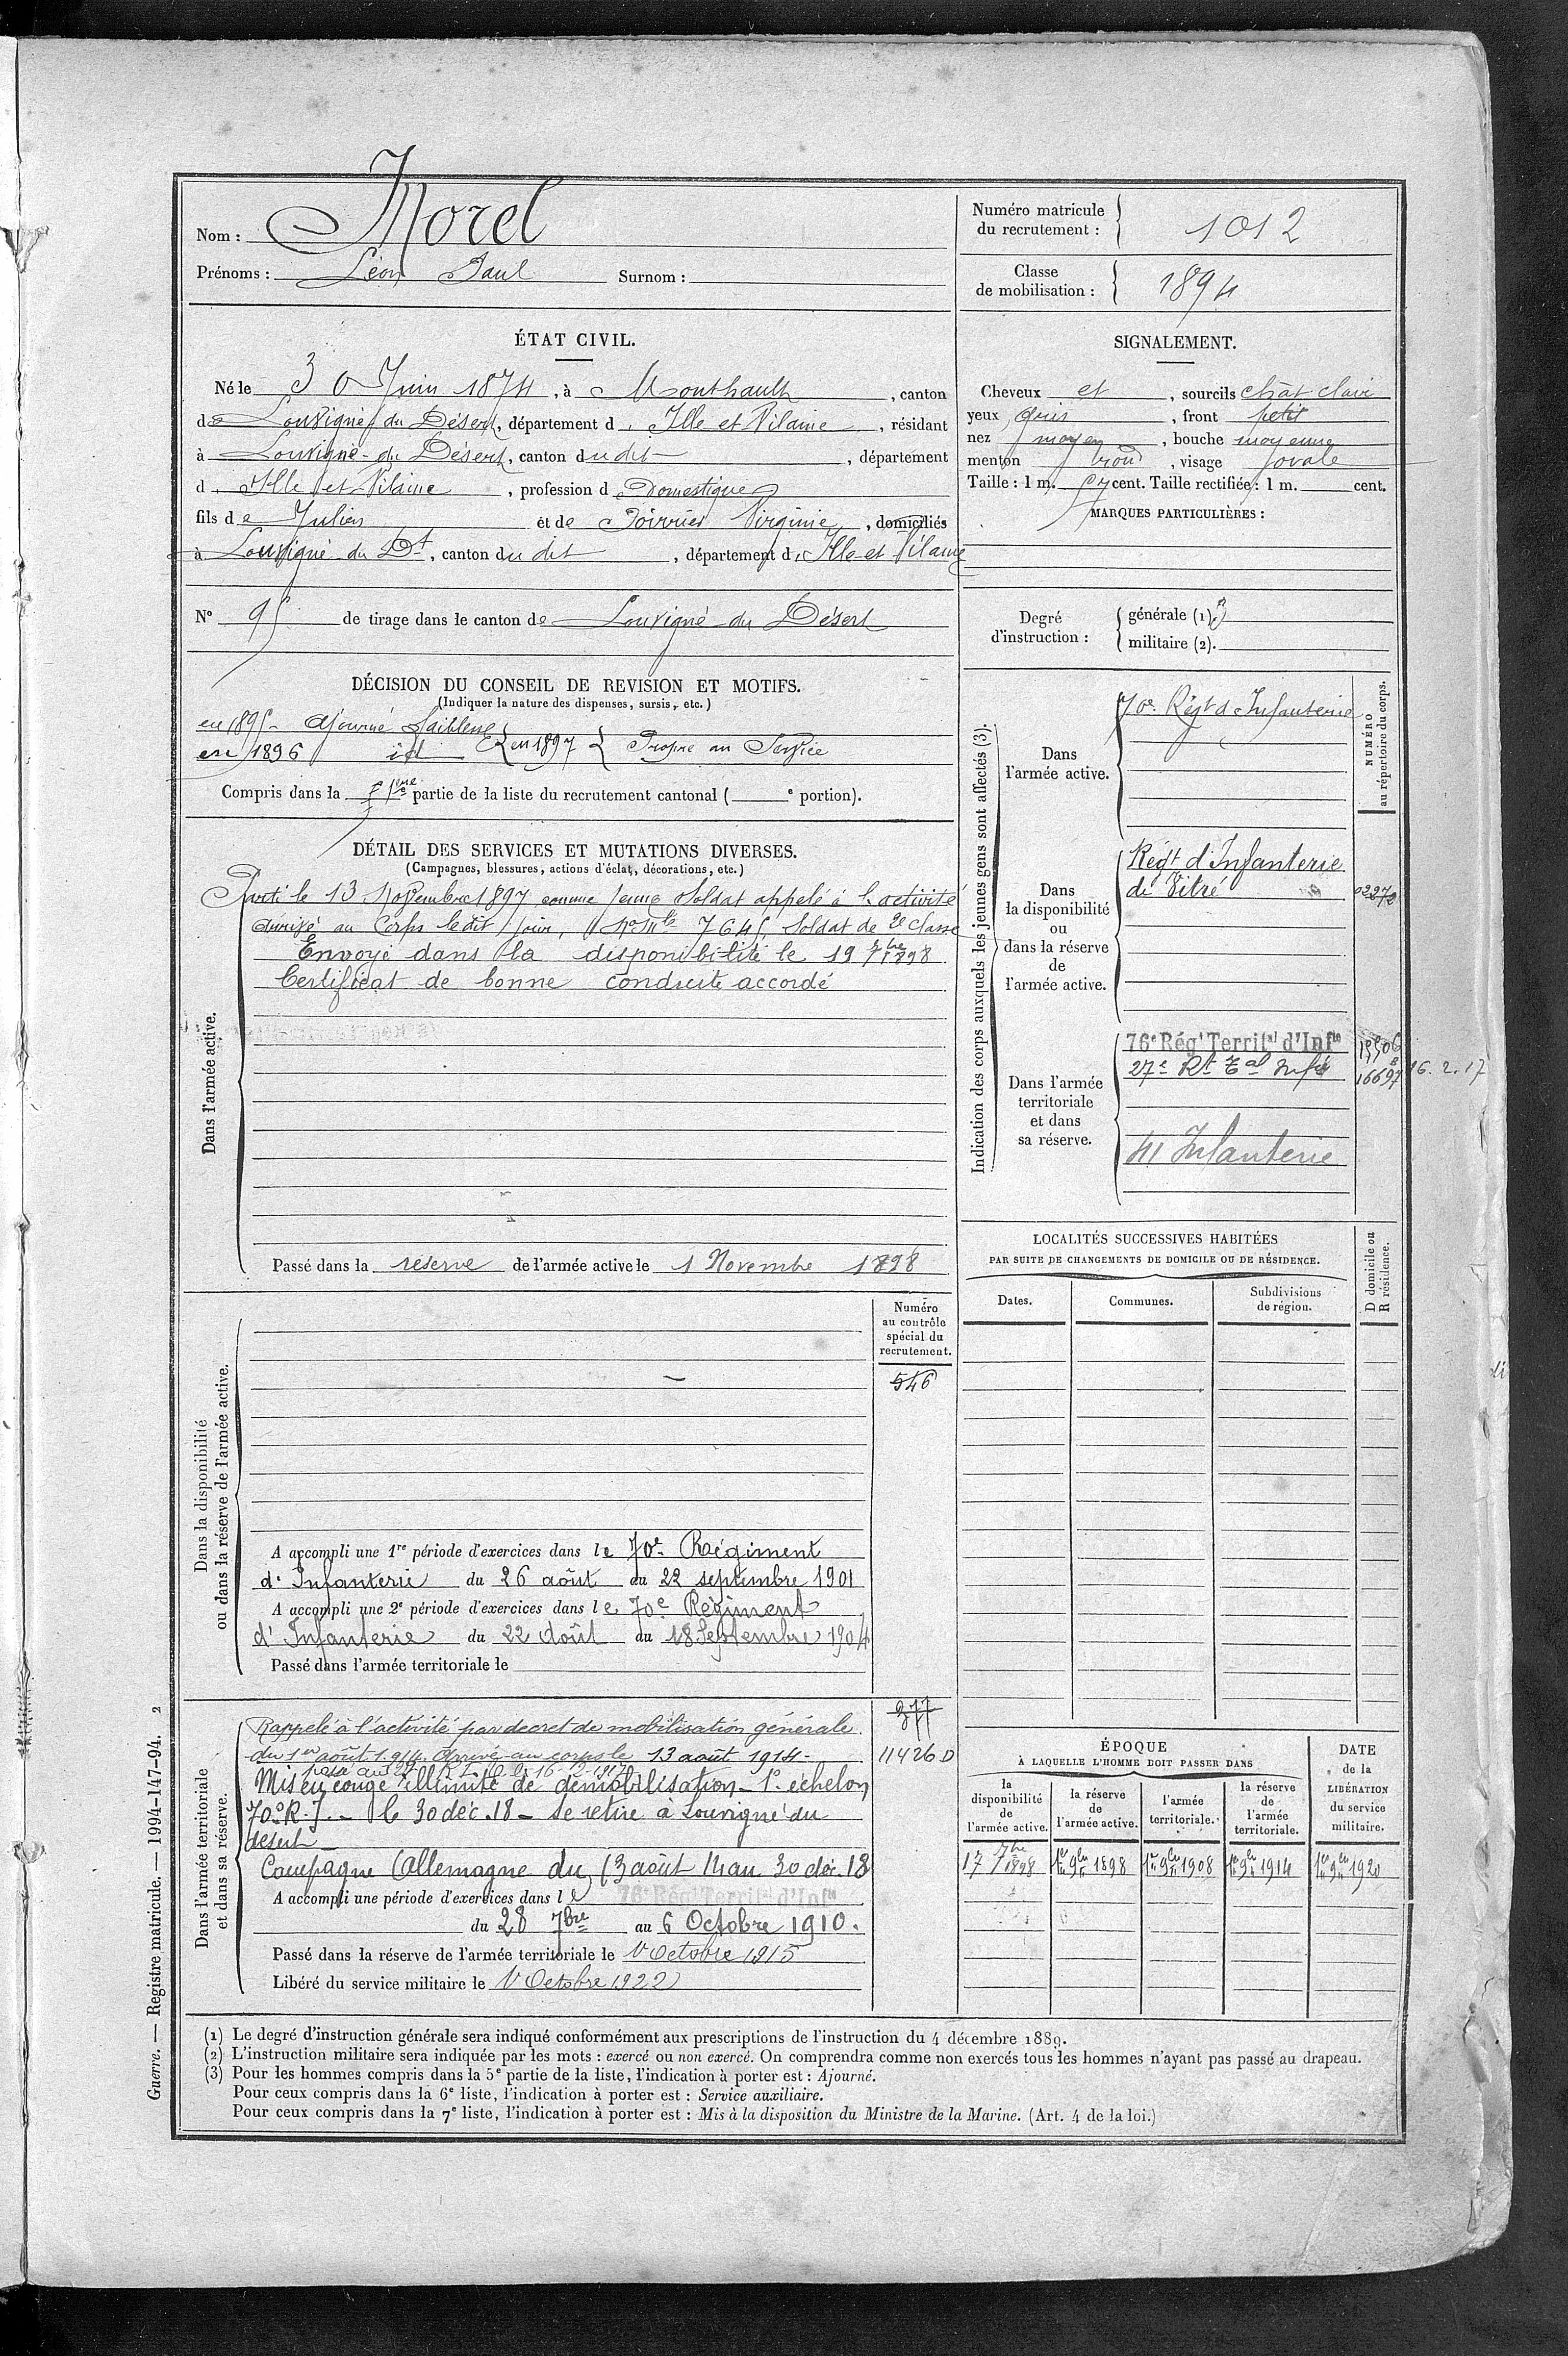 Nom : Morel
Prénoms : Léon Paul Surnom :
Numéro matricule du recrutement : 1012
Classe de mobilisation : 1894
ÉTAT CIVIL.
Né le 30 Juin 1874, à Monthault, canton
de Louvigné du Désert, département d'Ille et Vilaine, résidant
à Louvigné du Désert, canton dudit, département
d'Ille et Vilaine, profession de Domestique
fils de Julien et de Poirrier Virginie, domiciliés
à Louvigné du Dt, canton du dit, département d'Ille et Vilaine
N° 95 de tirage dans le canton de Louvigné du Désert
SIGNALEMENT.
Cheveux et, sourcils chât clair
yeux gris, front petit
nez moyen, bouche moyenne
menton rond, visage ovale
Taille : 1 m. 57 cent. Taille rectifiée : 1 m. cent.
MARQUES PARTICULIÈRES :
Degré d'instruction :
générale (1). 3
militaire (2).
DÉCISION DU CONSEIL DE REVISION ET MOTIFS.
(Indiquer la nature des dispenses, sursis, etc.)
en 1895 - Ajourné faiblesse
en 1896 id
en 1897 Propre au Service
Compris dans la partie de la liste du recrutement cantonal ( e portion).
DÉTAIL DES SERVICES ET MUTATIONS DIVERSES.
(Campagnes, blessures, actions d'éclat, décorations, etc.)
Dans l'armée active.
le 13 Novembre 1897 comme jeune Soldat appelé à l'activité
Arrivé au Corps ledit jour, No Mle 7645 Soldat de 2e Classe
Envoyé dans la disponibilité le 19 7bre 1898
Certificat de bonne conduite accordé
Passé dans la réserve de l'armée active le 1 Novembre 1898
Indication des corps auxquels les jeunes gens sont affectés (3).
NUMÉRO au répertoire du corps.
Dans l'armée active.
70e Régt d'Infanterie
Dans la disponibilité ou dans la réserve de l'armée active.
Régt d'Infanterie
de Vitré
Dans l'armée territoriale et dans sa réserve.
76e Régt Territal d'Infie
27e Rt Tal Infie
16697 16.2.17
41 Infanterie
LOCALITÉS SUCCESSIVES HABITÉES
PAR SUITE DE CHANGEMENTS DE DOMICILE OU DE RÉSIDENCE.
Dates.
Communes.
Subdivisions de région.
D domicile ou
R résidence.
Dans la disponibilité
ou dans la réserve de l'armée active.
Numéro
au contrôle
spécial du
recrutement.
546
A accompli une 1re période d'exercices dans le 70e Régiment
d'Infanterie du 26 août au 22 septembre 1901
A accompli une 2e période d'exercices dans le 70e Régiment
d'Infanterie du 22 Août au 18 Septembre 1904
Passé dans l'armée territoriale le
Dans l'armée territoriale
et dans sa réserve.
377
11426 D
Rappelé à l'activité par decret de mobilisation générale
du 1er août 1914. Arrivé au corps le 13 août 1914 -
Mis en congé illimité de démobilisation - 1er échelon
70e R.I. - le 30 déc. 18 - se retire à Louvigné du
désert
Campagne Allemagne du 13 août 14 au 30 déc. 18
A accompli une période d'exercices dans le 76e Régt Territal d'Infie
du 28 7bre au 6 Octobre 1910.
Passé dans la réserve de l'armée territoriale le 1er Octobre 1915
Libéré du service militaire le 1er Octobre 1922
ÉPOQUE
À LAQUELLE L'HOMME DOIT PASSER DANS
la disponibilité de l'armée active.
la réserve de l'armée active.
l'armée territoriale.
la réserve de l'armée territoriale.
DATE de la LIBÉRATION du service militaire.
17 7bre 1898
1er 9bre 1898
1er 9bre 1908
1er 9bre 1914
1er 9bre 1920
(1) Le degré d'instruction générale sera indiqué conformément aux prescriptions de l'instruction du 4 décembre 1889.
(2) L'instruction militaire sera indiquée par les mots : exercé ou non exercé. On comprendra comme non exercés tous les hommes n'ayant pas passé au drapeau.
(3) Pour les hommes compris dans la 5e partie de la liste, l'indication à porter est : Ajourné.
Pour ceux compris dans la 6e liste, l'indication à porter est : Service auxiliaire.
Pour ceux compris dans la 7e liste, l'indication à porter est : Mis à la disposition du Ministre de la Marine. (Art. 4 de la loi.)
Guerre. — Registre matricule. — 1994-147-94. 2